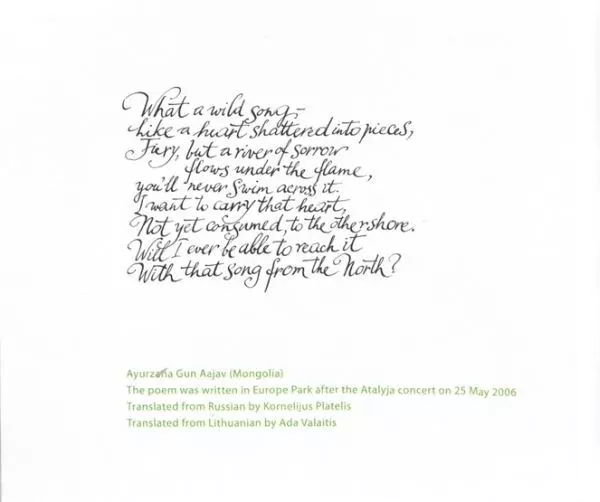 What a wild song,–
Like a heart shattered into pieces,
Fiery, but a river of sorrow
flows under the flame,
you'll never swim across it.
I want to carry that heart,
Not yet consumed, to the other shore.
Will I ever be able to reach it
With that song from the North?
Ayurzana Gun Aajav (Mongolia)
The poem was written in Europe Park after the Atalyja concert on 25 May 2006
Translated from Russian by Kornelijus Platelis
Translated from Lithuanian by Ada Valaitis